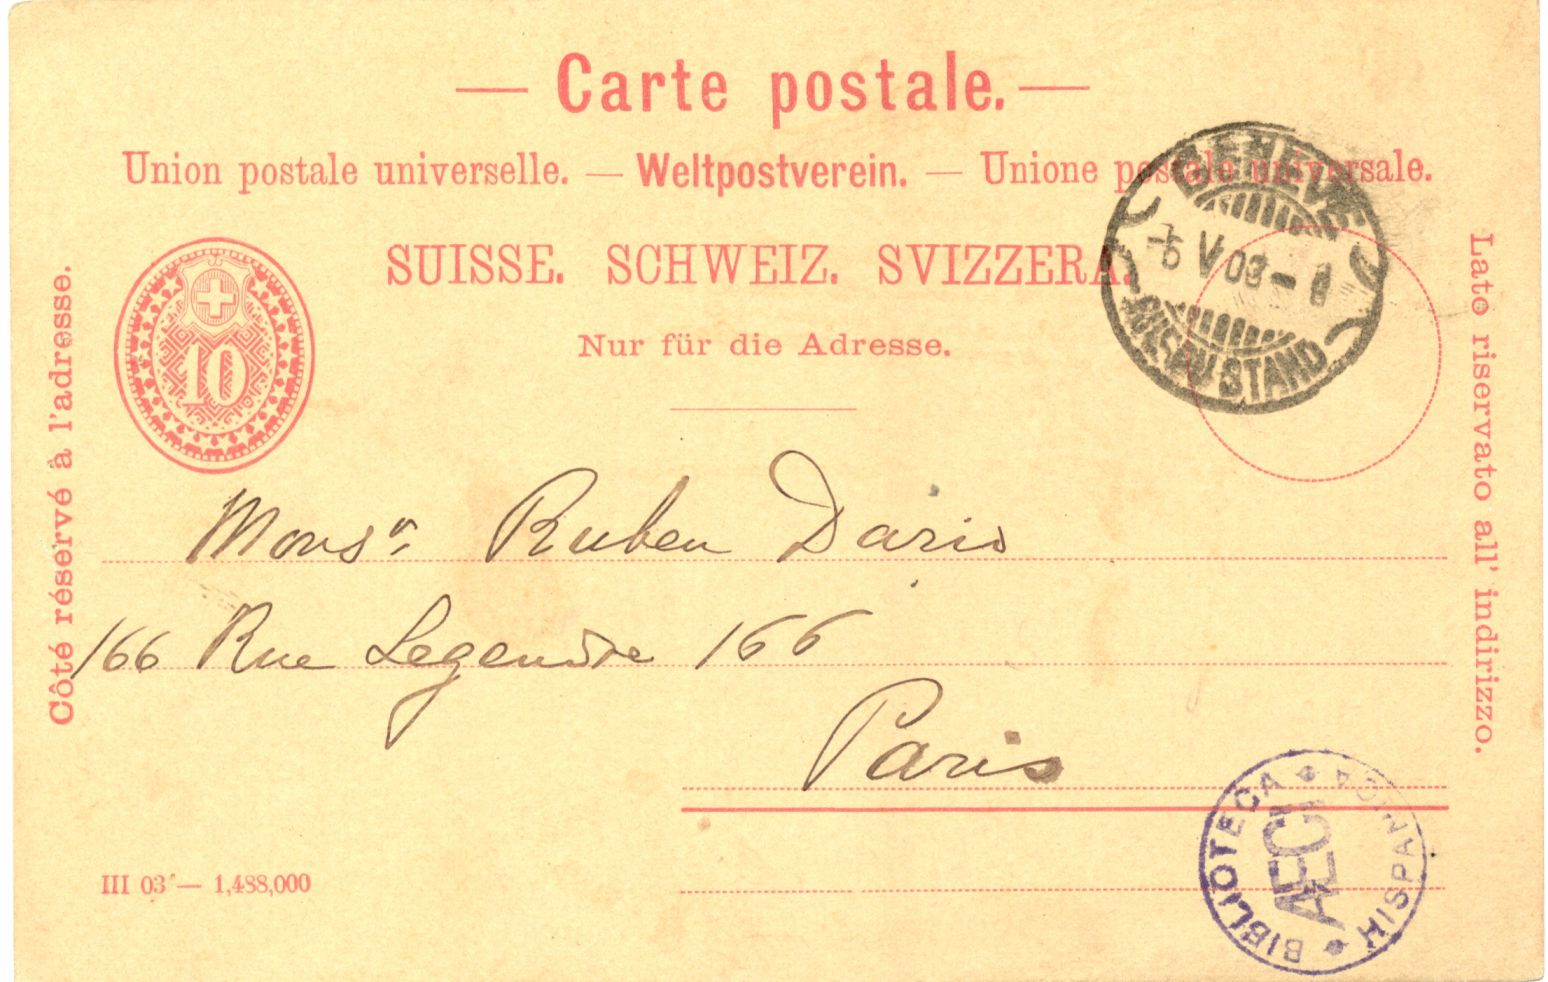 — Carte postale. —
Union postale universelle. — Weltpostverein. — Unione postale universale.
SUISSE. SCHWEIZ. SVIZZERA.
Nur für die Adresse.
Côté réservé à l'adresse.
Lato riservato all' indirizzo.
10
GENÈVE
V 03
STAND
Monsr. Ruben Dario
166 Rue Legendre 166
Paris
III 03 — 1,488,000
BIBLIOTECA HISPANICA
AECI